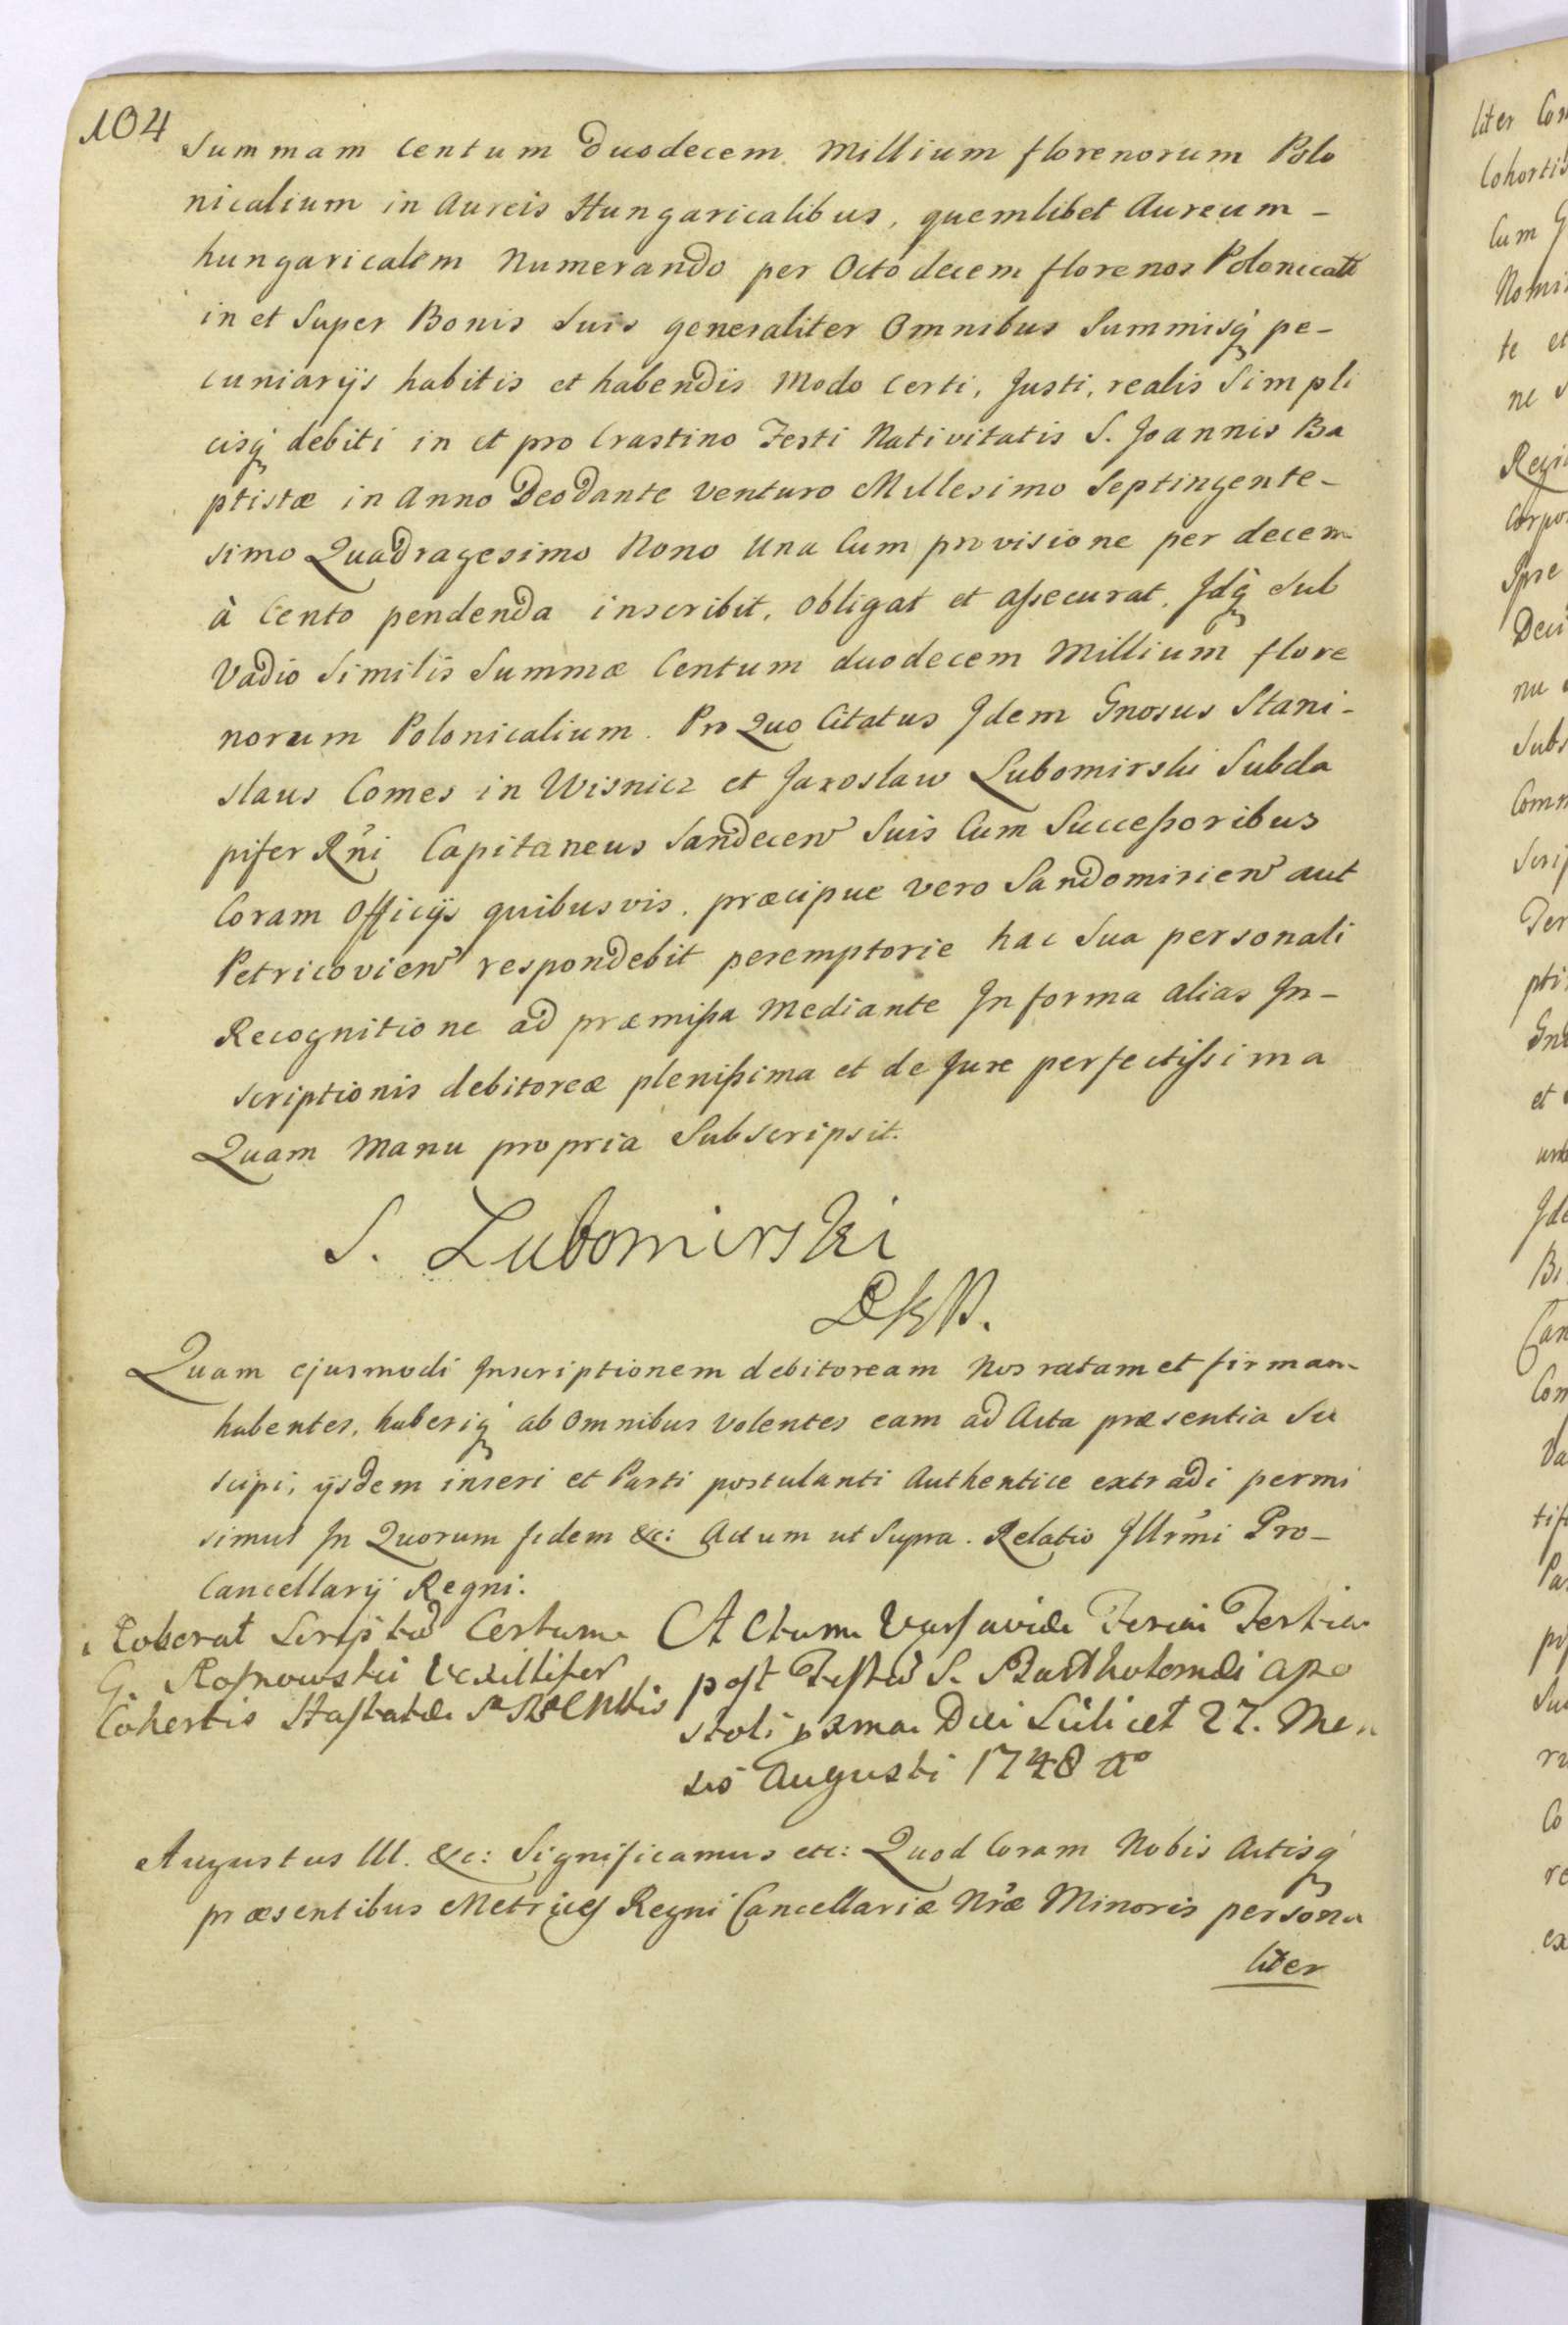 104
Summam Centum Duodecem Millium florenorum Polo
nicalium in Aureis Hungaricalibus, quemlibet Aureum -
hungaricalem Numerando per Octodecem florenos Polonicales
in et Super Bonis Suis generaliter Omnibus Summisq́ pe-
cuniarijs habitis et habendis Modo Certi, Justi, realis Simpli
cisq́ debiti in et pro Crastino Festi Nativitatis S. Joannis Ba
ptistæ in Anno Deodante Venturo Millesimo Septingente-
simo Quadragesimo Nono Una Cum provisione per decem
à Cento pendenda inscribit, obligat et assecurat. Idq́ Sub
Vadio Similis Summæ Centum duodecem Millium flore
norum Polonicalium. Pro Quo Citatus Idem Gnosus Stani-
slaus Comes in Wisnicz et Jaroslaw Lubomirski Subda
pifer Rńi Capitaneus Sandecen Suis Cum Successoribus
Coram Officijs quibusvis, præcipue vero Sandomirien aut
Petricovien respondebit peremptorie hac Sua personali
Recognitione ad præmissa Mediante In forma alias In-
scriptionis debitoreæ plenissima et de Jure perfectissima
Quam Manu propria Subscripsit.
S. Lubomirski
Quam ejusmodi Inscriptionem debitoream Nos ratam et firmam
habentes, haberiq́ ab Omnibus Volentes eam ad Acta præsentia Su
scipi, ijsdem inseri et Parti postulanti Authentice extradi permi
simus In Quorum fidem &c: Actum ut Supra. Relatio Illrḿi Pro-
Cancellarij Regni.
Roborat Scriptu Certum Actum Varsaviæ Feria Tertia
G. Rosnowski Vexillifer post Festu S. Bartholomæi Apo
Cohortis Hastatæ stoli pxma Die Scilicet 27. Men
sis Augusti 1748 Ao
Augustus III. &c: Significamus etc: Quod Coram Nobis Actisq́
præsentibus Metrices Regni Cancellariæ Nræ Minoris persona
liter
liter Con
Cohortis
Cum G
Nomi
te et
ne
Regi
Corpo
Ipse
Deci
nu
Subs
Comm
Scrip
Ter
pti
Gn
et
Ide
Can
Com
Va
tif
Pa
Su
Co
re
ex